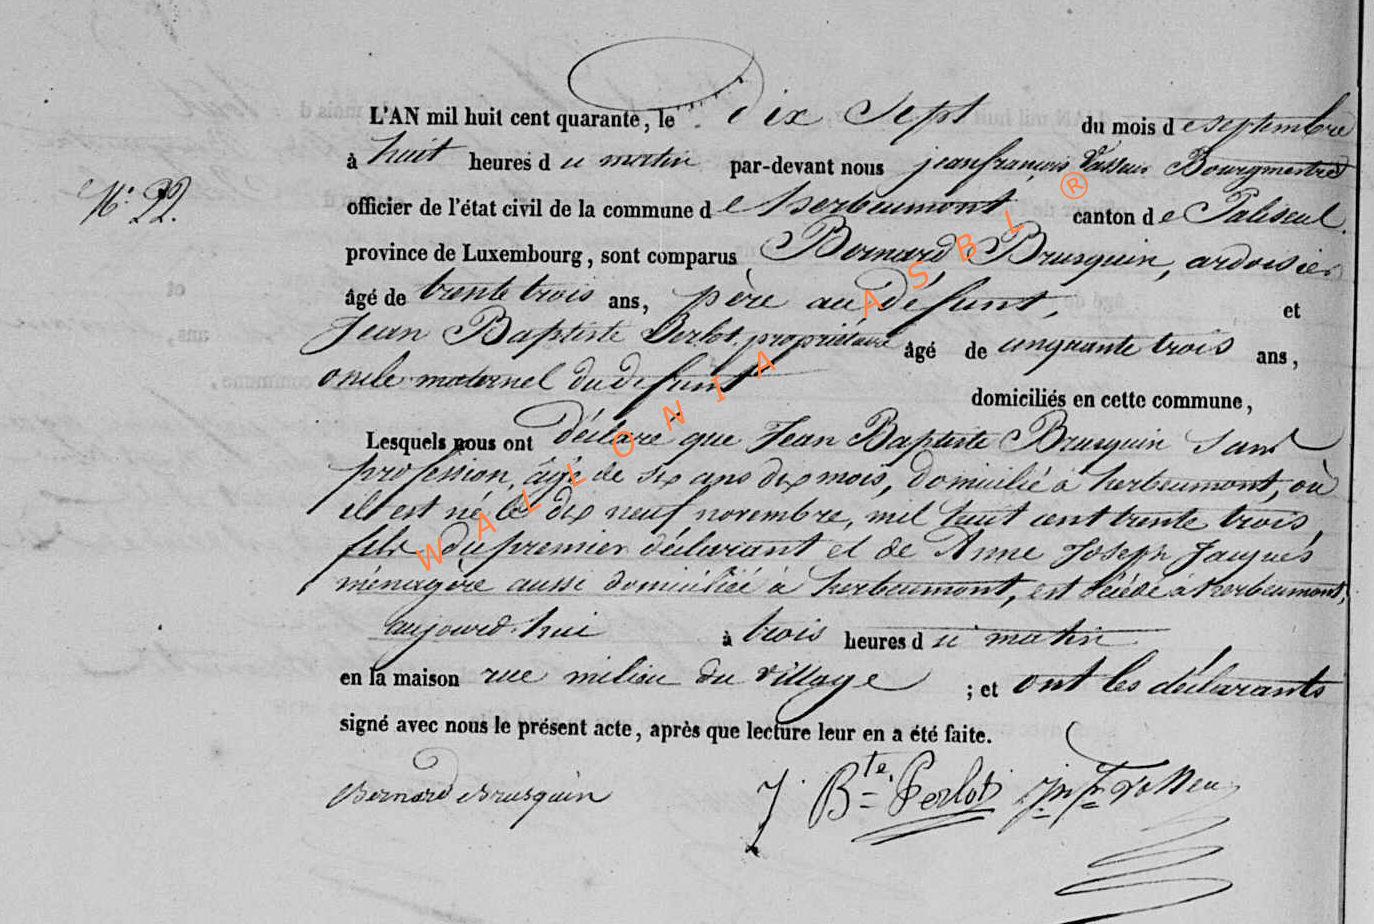 L'AN mil huit cent quarante, le dix sept du mois de septembre
à huit heures du matin par-devant nous jeanfrançois Vasseur Bourgmestre
N.° 22.
officier de l'état civil de la commune de herbeumont canton de Paliseul.
province de Luxembourg, sont comparus Bernard Brusquin, ardoisier
âgé de trente trois ans, père au défunt, et
Jean Baptiste Perlot propriétaire âgé de cinquante trois ans,
oncle maternel du défunt
domiciliés en cette commune,
Lesquels nous ont déclaré que Jean Baptiste Brusquin sans
profession, âgé de six ans dix mois, domicilié à herbeumont, où
il est né le dix neuf novembre, mil huit cent trente trois,
fils du premier déclarant et de Anne Joseph Jacques
ménagère aussi domiciliée à herbeumont, est décédé à herbeumont,
aujourd'hui à trois heures du matin
en la maison rue milieu du village ; et ont les déclarants
signé avec nous le présent acte, après que lecture leur en a été faite.
Bernard Brusquin J. Bte Perlot
WALLONIA ASBL ®